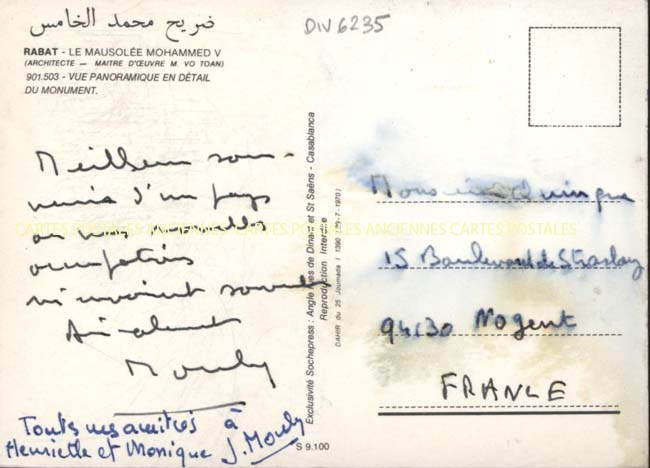 ضريح محمد الخامس
DIV 6235
RABAT - LE MAUSOLÉE MOHAMMED V
(ARCHITECTE — MAITRE D'ŒUVRE M. VO TOAN)
901.503 - VUE PANORAMIQUE EN DÉTAIL
DU MONUMENT.
Meilleurs sou-
venirs d'un pays
où mes nouvelles
occupations
m'envoient souvent
Amicalement
Mouly
Toutes mes amitiés à
Henriette et Monique J. Mouly
Exclusivité Sochepress : Angle Rues de Dinant et St Saëns - Casablanca
Reproduction Interdite
DAHIR du 25 Joumada I 1390 (29-7-1970)
S 9.100
Monsieur Quinque
15 Boulevard de Strasbourg
94130 Nogent
FRANCE
CARTES POSTALES ANCIENNES CARTES POSTALES ANCIENNES CARTES POSTALES